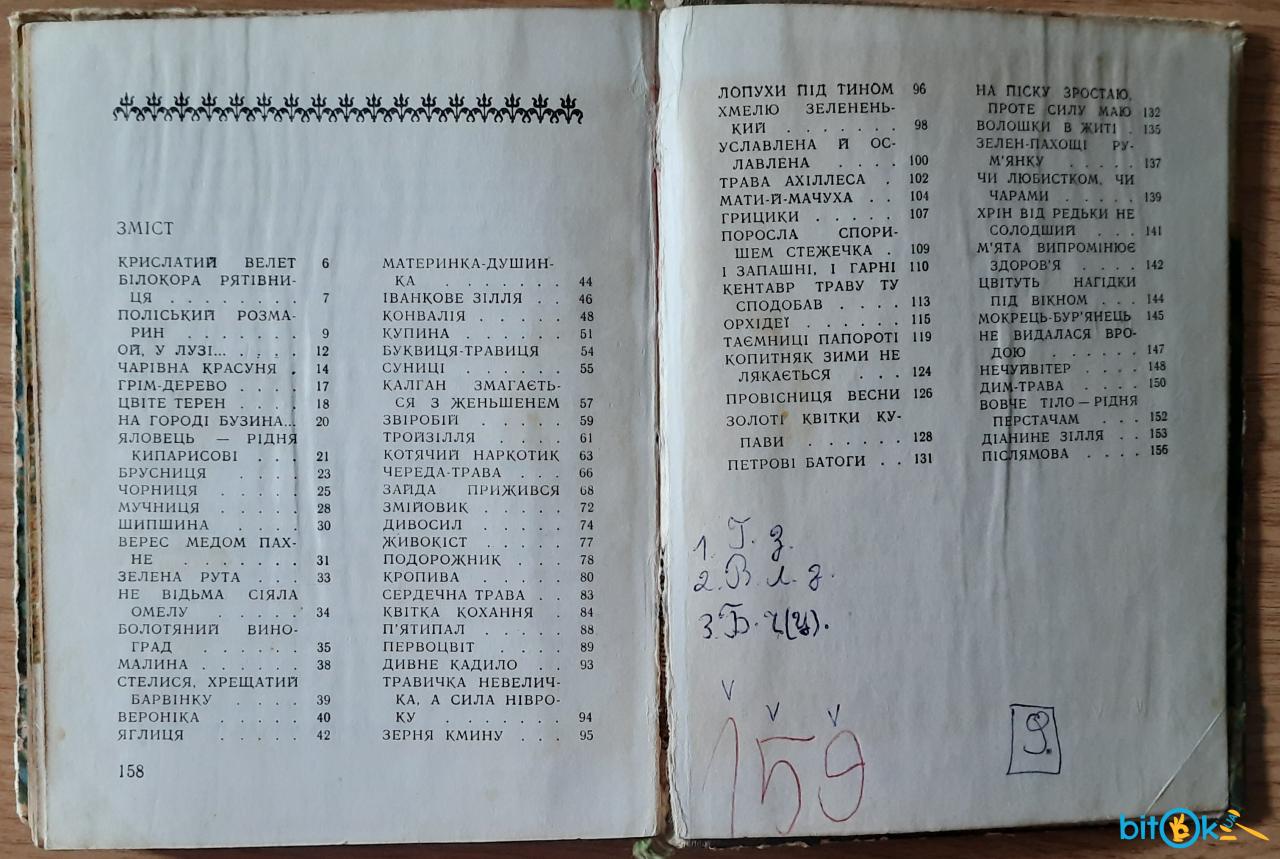 ЗМІСТ
КРИСЛАТИЙ ВЕЛЕТ 6
БІЛОКОРА РЯТІВНИ-
ЦЯ . . . . . . . . 7
ПОЛІСЬКИЙ РОЗМА-
РИН . . . . . . . 9
ОЙ, У ЛУЗІ... . . . . 12
ЧАРІВНА КРАСУНЯ . 14
ГРІМ-ДЕРЕВО . . . . 17
ЦВІТЕ ТЕРЕН . . . . 18
НА ГОРОДІ БУЗИНА... 20
ЯЛОВЕЦЬ — РІДНЯ
КИПАРИСОВІ . . . 21
БРУСНИЦЯ . . . . . 23
ЧОРНИЦЯ . . . . . 25
МУЧНИЦЯ . . . . . 28
ШИПШИНА . . . . . 30
ВЕРЕС МЕДОМ ПАХ-
НЕ . . . . . . . 31
ЗЕЛЕНА РУТА . . . 33
НЕ ВІДЬМА СІЯЛА
ОМЕЛУ . . . . . 34
БОЛОТЯНИЙ ВИНО-
ГРАД . . . . . . 35
МАЛИНА . . . . . . 38
СТЕЛИСЯ, ХРЕЩАТИЙ
БАРВІНКУ . . . . 39
ВЕРОНІКА . . . . . 40
ЯГЛИЦЯ . . . . . . 42
158
МАТЕРИНКА-ДУШИН-
КА . . . . . . . 44
ІВАНКОВЕ ЗІЛЛЯ . . 46
КОНВАЛІЯ . . . . . 48
КУПИНА . . . . . . 51
БУКВИЦЯ-ТРАВИЦЯ 54
СУНИЦІ . . . . . . 55
КАЛГАН ЗМАГАЄТЬ-
СЯ З ЖЕНЬШЕНЕМ 57
ЗВІРОБІЙ . . . . . 59
ТРОЙЗІЛЛЯ . . . . 61
КОТЯЧИЙ НАРКОТИК 63
ЧЕРЕДА-ТРАВА . . . 66
ЗАЙДА ПРИЖИВСЯ 68
ЗМІЙОВИК . . . . . 72
ДИВОСИЛ . . . . . 74
ЖИВОКІСТ . . . . . 77
ПОДОРОЖНИК . . . 78
КРОПИВА . . . . . 80
СЕРДЕЧНА ТРАВА . . 83
КВІТКА КОХАННЯ . 84
П'ЯТИПАЛ . . . . . 88
ПЕРВОЦВІТ . . . . 89
ДИВНЕ КАДИЛО . . 93
ТРАВИЧКА НЕВЕЛИЧ-
КА, А СИЛА НІВРО-
КУ . . . . . . . 94
ЗЕРНЯ КМИНУ . . . 95
ЛОПУХИ ПІД ТИНОМ 96
ХМЕЛЮ ЗЕЛЕНЕНЬ-
КИЙ . . . . . . . 98
УСЛАВЛЕНА Й ОС-
ЛАВЛЕНА . . . . 100
ТРАВА АХІЛЛЕСА . 102
МАТИ-Й-МАЧУХА . . 104
ГРИЦИКИ . . . . . 107
ПОРОСЛА СПОРИ-
ШЕМ СТЕЖЕЧКА . 109
І ЗАПАШНІ, І ГАРНІ 110
КЕНТАВР ТРАВУ ТУ
СПОДОБАВ . . . . 113
ОРХІДЕЇ . . . . . . 115
ТАЄМНИЦІ ПАПОРОТІ 119
КОПИТНЯК ЗИМИ НЕ
ЛЯКАЄТЬСЯ . . . 124
ПРОВІСНИЦЯ ВЕСНИ 126
ЗОЛОТІ КВІТКИ КУ-
ПАВИ . . . . . . 128
ПЕТРОВІ БАТОГИ . . 131
НА ПІСКУ ЗРОСТАЮ,
ПРОТЕ СИЛУ МАЮ 132
ВОЛОШКИ В ЖИТІ . 135
ЗЕЛЕН-ПАХОЩІ РУ-
М'ЯНКУ . . . . . 137
ЧИ ЛЮБИСТКОМ, ЧИ
ЧАРАМИ . . . . . 139
ХРІН ВІД РЕДЬКИ НЕ
СОЛОДШИЙ . . . . 141
М'ЯТА ВИПРОМІНЮЄ
ЗДОРОВ'Я . . . . 142
ЦВІТУТЬ НАГІДКИ
ПІД ВІКНОМ . . . 144
МОКРЕЦЬ-БУР'ЯНЕЦЬ 145
НЕ ВИДАЛАСЯ ВРО-
ДОЮ . . . . . . 147
НЕЧУЙВІТЕР . . . . 148
ДИМ-ТРАВА . . . . 150
ВОВЧЕ ТІЛО — РІДНЯ
ПЕРСТАЧАМ . . . 152
ДІАНИНЕ ЗІЛЛЯ . . 153
ПІСЛЯМОВА . . . . 156
1. Г. з.
2. В. л. з.
3. Б. ч(ц).
159
9.
bitOk UA